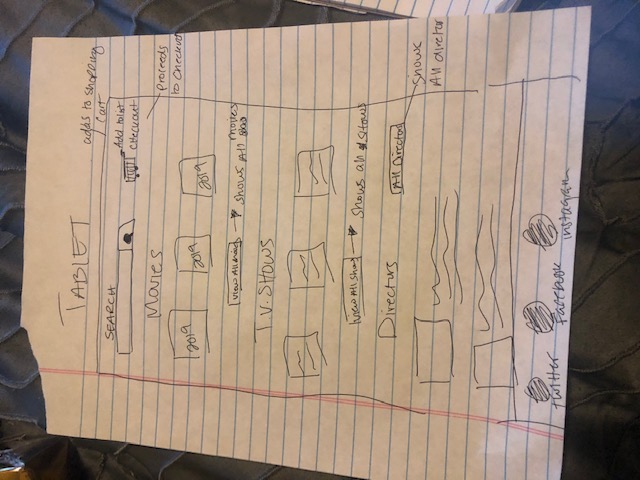 TABLET
adds to shopping
cart
SEARCH
Add to list
checkout
proceeds
to checkout
Movies
2019 2019 2019
View All Movies shows All movies
T.V. SHOWS
View All Shows shows all shows
Directors
All Directors
shows
All director
twitter Facebook instagram